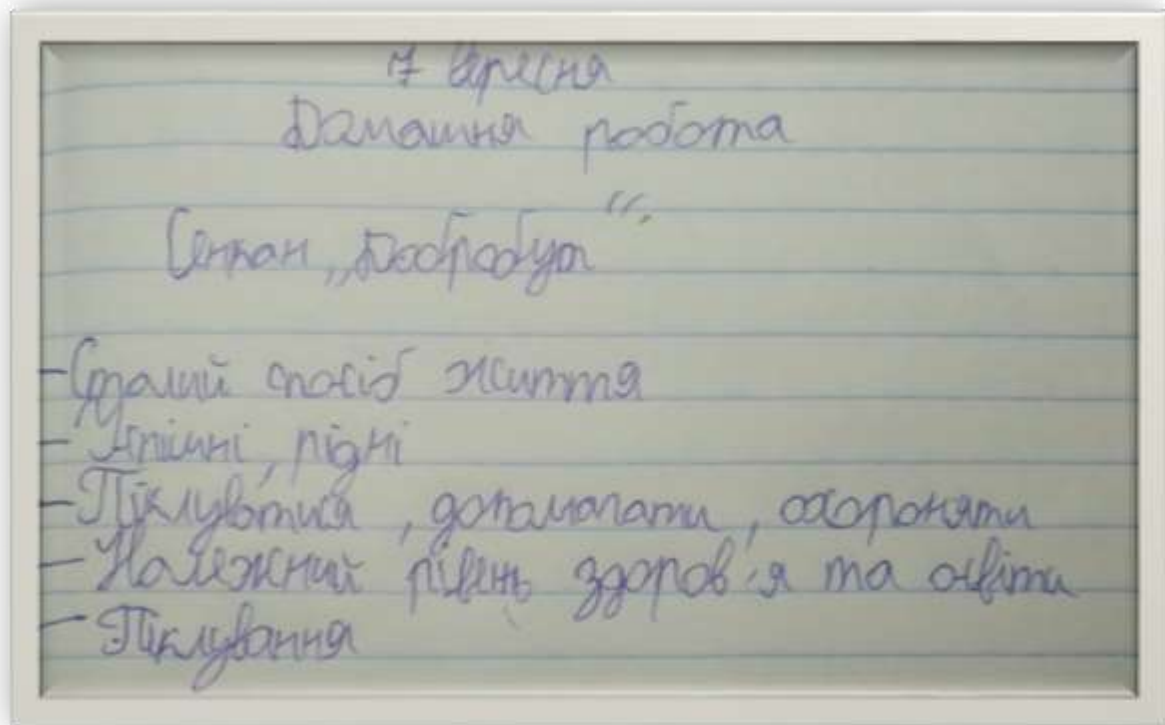 7 вересня
Домашня робота
Сенкан „Добробут“.
-Сталий спосіб життя
- , рідні
-Піклуватися, допомагати, охороняти
-Належний рівень здоров'я та освіти
-Піклування